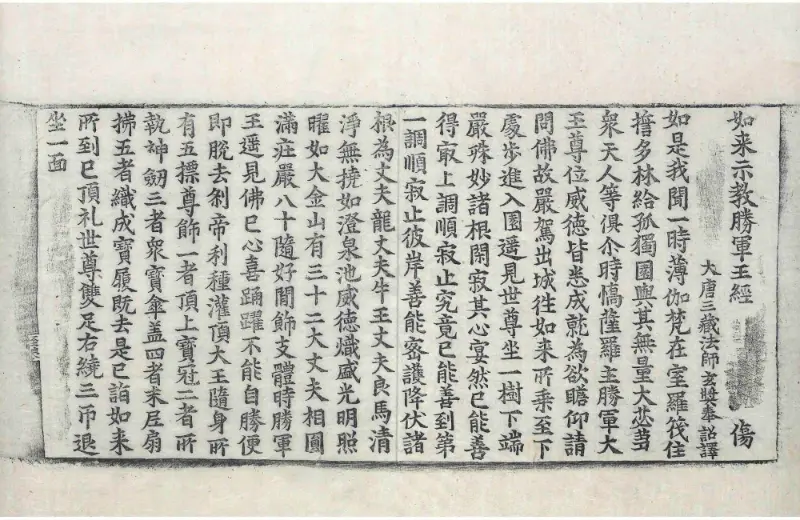 如来示教勝軍王經 傷
大唐三藏法師玄奘奉詔譯
如是我聞一時薄伽梵在室羅筏住
擔多林給孤獨園與其無量大苾蒭
衆天人等俱尒時憍薩羅主勝軍大
王尊位威德皆悉成就為欲瞻仰請
問佛故嚴駕出城徃如来所乗至下
處步進入園遥見世尊坐一樹下端
嚴殊妙諸根閑寂其心宴然已能善
得㝡上調順寂止究竟已能善到第
一調順寂止彼岸善能密護降伏諸
根為丈夫龍丈夫牛王丈夫良馬清
淨無撓如澄泉池威德熾盛光明照
曜如大金山有三十二大丈夫相圓
滿庄嚴八十隨好間飾支體時勝軍
王遥見佛已心喜踊躍不能自勝便
即脫去刹帝利種灌頂大王隨身所
有五摽尊飾一者頂上寶冠二者所
執神劒三者衆寶傘盖四者末尼扇
拂五者織成寶履既去是已詣如来
所到已頂礼世尊雙足右繞三帀退
坐一面